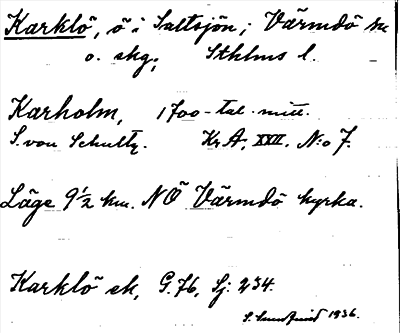 Karklö, ö i Saltsjön, i Värmdö sn
o. skg, Sthlms l.
Karholm, 1700-tal. mitt.
S. von Schultz. Kr A, XXII. N:o 7.
Läge 9½ km. NÖ Värmdö kyrka.
Karklö ek, G. 76, Sj: 234.
S. 1936.